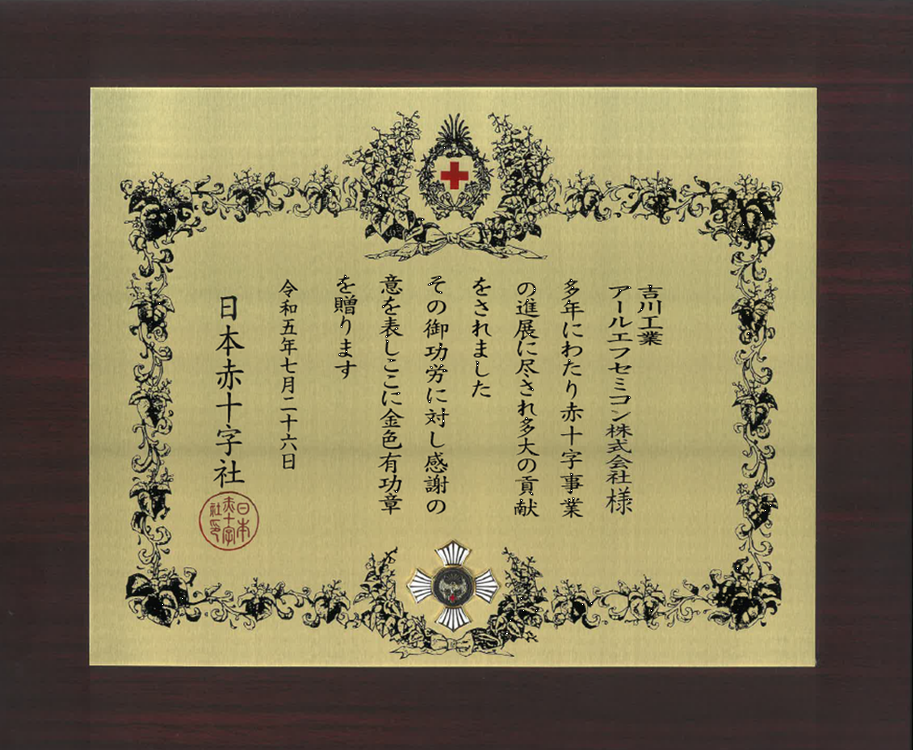 吉川工業
アールエフセミコン株式会社 様
多年にわたり赤十字事業
の進展に尽され多大の貢献
をされました
その御功労に対し感謝の
意を表しここに金色有功章
を贈ります
令和五年七月二十六日
日本赤十字社
日本
赤十字
社印